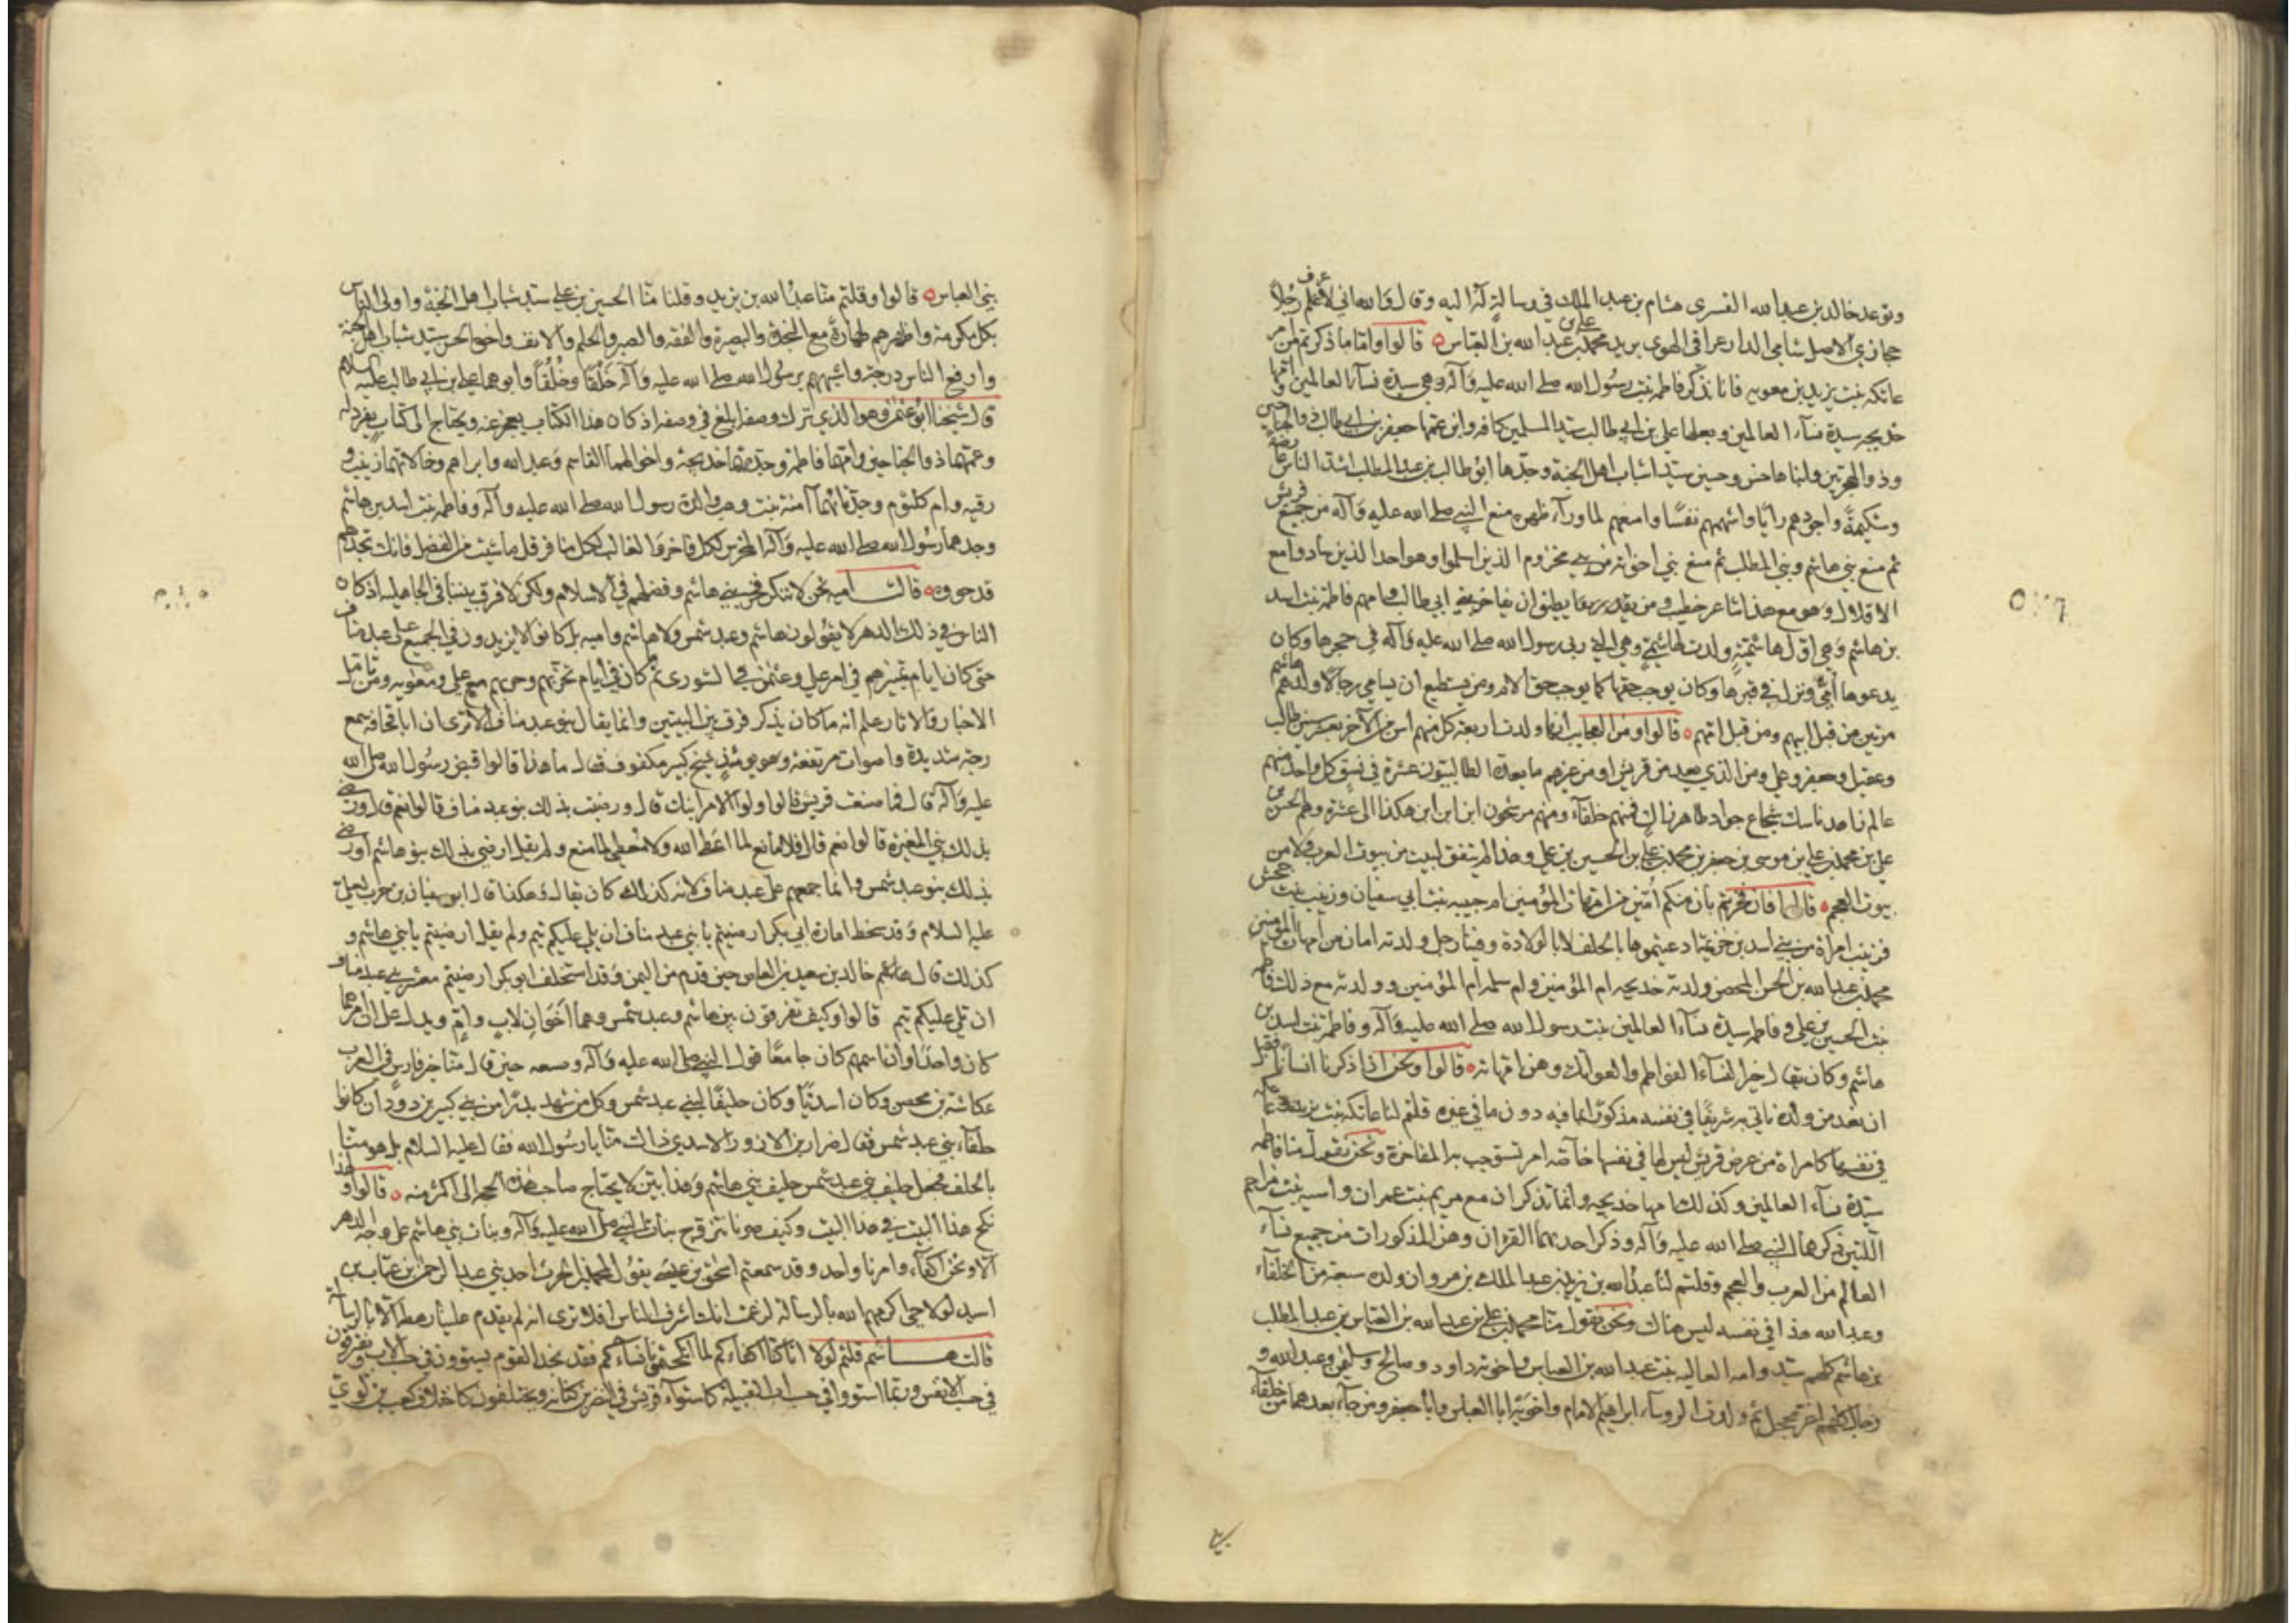 وتوعد خالد بن عبد الله القسرى هشام بن عبد الملك في رسالة له اليه وقال والله اني لأعرف رجلاً
حجازي الاصل شامي الدار عراقي الهوى يريد محمد بن علي بن عبد الله بن العباس ه قالوا واما ما ذكرتم من امر
عاتكه بنت يزيد بن معويه فانا نذكر فاطمه بنت رسول الله صلى الله عليه وآله وهي سيدة نسآء العالمين وامها
خديجه سيدة نسآء العالمين وبعلها علي بن ابي طالب سيد المسلمين كافه وابن عمها جعفر بن ابي طالب ذو الجناحين
وذو الهجرتين وابناها حسن وحسين سيدا شباب اهل الجنة وجدها ابو طالب بن عبد المطلب اشد الناس عارضة
وشكيمةً واجودهم رأيًا واشهمهم نفسًا وامنعهم لما ورآء ظهره منع النبي صلى الله عليه وآله من جميع قريش
ثم منع بني هاشم وبني المطلب ثم منع بني اخوته من بني مخزوم الذين اسلموا وهو احد الذين سادوا مع
الاقلال وهو مع هذا شاعر خطيب ومن يقدر يطيق ان يفاخر بني ابي طالب وامهم فاطمه بنت اسد
بن هاشم وهي اول هاشمية ولدت لهاشمي وهي التي ربي رسول الله صلى الله عليه وآله في حجرها وكان
يدعوها أمي ونزل في قبرها وكان يوجب حقها كما يوجب حق الام ومن يستطيع ان يسامي رجالا ولدهم هاشم
مرتين من قبل ابيهم ومن قبل امهم ه قالوا ومن العجايب انها ولدت اربعة كل منهم اسن من الآخر بعشر سنين طالب
وعقيل وجعفر وعلي ومن الذي يعد من قريش او من غيرهم ما يعده الطالبيون عشرة في نسق كل واحد منهم
عالم زاهد ناسك شجاع جواد طاهر زاك فمنهم خلفآء ومنهم مرشحون ابن ابن ابن هكذا الى عشرة وهم الحسن بن
علي بن محمد بن علي بن موسى بن جعفر بن محمد بن علي بن الحسين بن علي وهذا لم يتفق لبيت من بيوت العرب ولا من
بيوت العجم ه قالوا فان فخرتم بان منكم أمين من امهات المؤمنين ام حبيبه بنت ابي سفيان وزينب بنت جحش
فزينب امرأة من بني اسد بن خزيمة ادعيتموها بالحلف لا بالولادة وفينا رجل ولدته امان من أمهات المؤمنين
محمد بن عبد الله بن الحسن المحض ولدته خديجه ام المؤمنين وام سلمه ام المؤمنين وولدته مع ذلك فاطمه
بنت الحسين بن علي وفاطمه سيدة نسآء العالمين بنت رسول الله صلى الله عليه وآله وفاطمة بنت اسد بن
هاشم وكان يقال خير النسآء الفواطم والعواتك وهن امهاته ه قالوا ونحن اذا ذكرنا انسانا فقبل
ان نعد من ولده ناتي به شريفًا في نفسه مذكورًا بما فيه دون ما في غيره قلتم لنا عاتكه بنت يزيد وعاتكه
في نفسها كامراة من عرض قريش ليس لها في نفسها خاصّة امر تستوجب به المفاخرة ونحن نقول منا فاطمه
سيدة نسآء العالمين وكذلك امها خديجه وانما تذكران مع مريم بنت عمران واسيه بنت مزاحم
اللتين ذكرهما النبي صلى الله عليه وآله وذكر احديهما القران وهن المذكورات من جميع نسآء
العالم من العرب والعجم وقلتم لنا عبد الله بن يزيد بن عبد الملك بن مروان ولده سبعة من الخلفآء
وعبد الله هذا في نفسه ليس هناك ونحن نقول منا محمد بن علي بن عبد الله بن العباس بن عبد المطلب
بن هاشم كلهم سيد وامه العاليه بنت عبد الله بن العباس واخوته داود وصالح وسليمن وعبد الله و
رجال كلهم اغر محجل ثم ولدت الروسآء ابراهيم الامام واخويه ابا العباس وابا جعفر ومن جآء بعدهما من خلفآء
٥٢٦
بني العباس ه قالوا وقلتم منا عبد الله بن يزيد وقلنا منّا الحسين بن علي سيد شباب اهل الجنة واولى الناس
بكل مكرمة واطهرهم طهارة مع النجدة والبصيرة والفقه والصبر والحلم والانف واخوه الحسن سيد شباب اهل الجنة
وارفع الناس درجة واشبههم برسول الله صلى الله عليه وآله خَلْقًا وخُلُقًا وابوهما علي بن ابي طالب عليه السلام
قال شيخنا ابو عثمن وهو الذي ترك وصفه ابلغ في وصفه اذ كان هذا الكتاب يعجز عنه ويحتاج الى كتاب يفرد له
وعمهما ذو الجناحين وامهما فاطمة وجدتهما خديجة واخوالهما القاسم وعبد الله وابراهيم وخالاتهما زينب و
رقيه وام كلثوم وجدتاهما آمنة بنت وهب والدة رسول الله صلى الله عليه وآله وفاطمه بنت اسد بن هاشم
وجدهما رسول الله صلى الله عليه وآله المخرس لكل فاخر والغالب لكل منافر قل ما شئت من الفضل فانك تجدهم
قد حووه ه قالت اميه نحن لا ننكر فخر بني هاشم وفضلهم في الاسلام ولكن لا فرق بيننا في الجاهليه اذ كان
الناس في ذلك الدهر لا يقولون هاشم وعبد شمس ولا هاشم واميه بل كانوا لا يزيدون في الجميع على عبد مناف
حتى كان ايام تميزهم في امر علي وعثمن في الشورى ثم ما كان في أيام تحزبهم وحربهم مع علي ومعويه ومن تامل
الاخبار والاثار علم انه ما كان يذكر فرق بين البيتين وانما يقال بنو عبد مناف الا ترى ان ابا قحافه سمع
رجة شديدة واصوات مرتفعة وهو يومئذٍ شيخ كبير مكفوف فقال ما هذا قالوا قبض رسول الله صلى الله
عليه وآله قال فما صنعت قريش قالوا ولوا الامر ابنك قال ورضيت بذلك بنو عبد مناف قالوا نعم قال ورضي
بذلك بني المغيرة قالوا نعم قال فلا مانع لما اعطى الله ولا معطي لما منع ولم يقل ارضي بذلك بنو هاشم أورضي
بذلك بنو عبد شمس وانما جمعهم على عبد مناف لانه كذلك كان يقال وهكذا قال ابو سفيان بن حرب لعلي
عليه السلام وقد سخط امارة ابي بكر ارضيتم يا بني عبد مناف ان يلي عليكم تيم ولم يقل ارضيتم يا بني هاشم و
كذلك قال خالد بن سعيد بن العاص حين قدم من اليمن وقد استخلف ابو بكر ارضيتم معشر بني عبد مناف
ان تلي عليكم تيم قالوا وكيف تفرقون بين هاشم وعبد شمس وهما أخوان لاب وام ويدل على ان امرهما
كان واحدًا وان اسمهم كان جامعًا قول النبي صلى الله عليه وآله وصنعه حين قال منا خير فارس في العرب
عكاشة بن محصن وكان اسديًّا وكان حليفًا لبني عبد شمس وكل من شهد بدرًا من بني كبير بن دودان كانوا
حلفآء بني عبد شمس فقال ضرار بن الازور الاسدي ذاك منّا يا رسول الله فقال عليه السلام بل هو منّا
بالحلف فجعل حليف بني عبد شمس حليف بني هاشم وهذا بين لا يحتاج صاحب هذه الحجه الى اكثر منه ه قالوا ولهذا
نكح هذا البيت في هذا البيت وكيف صرنا نتزوج بنات النبي صلى الله عليه وآله وبنات بني هاشم على وجه الدهر
الا ونحن اكفآء وامرنا واحد وقد سمعتم اسحق بن عيسى يقول لمحمد بن الحرث احد بني عبد الرحمن بن عتاب بن
اسيد لولا حي اكرمهم الله بالرسالة لزعمت انك اشرف الناس افلا ترى انه لم يقدم علينا رهطه الا بالرسالة
قالت هاشم قلتم لولا انا كنا اكفاءكم لما انكحتمونا نساءكم فقد نجد القوم يستوون في حسب الاب ويفترقون
في حسب الانفس وربما استووا في حسب ابي القبيلة كاستوآء قريش في النضر بن كنانه ويختلفون كاختلاف كعب بن لوي